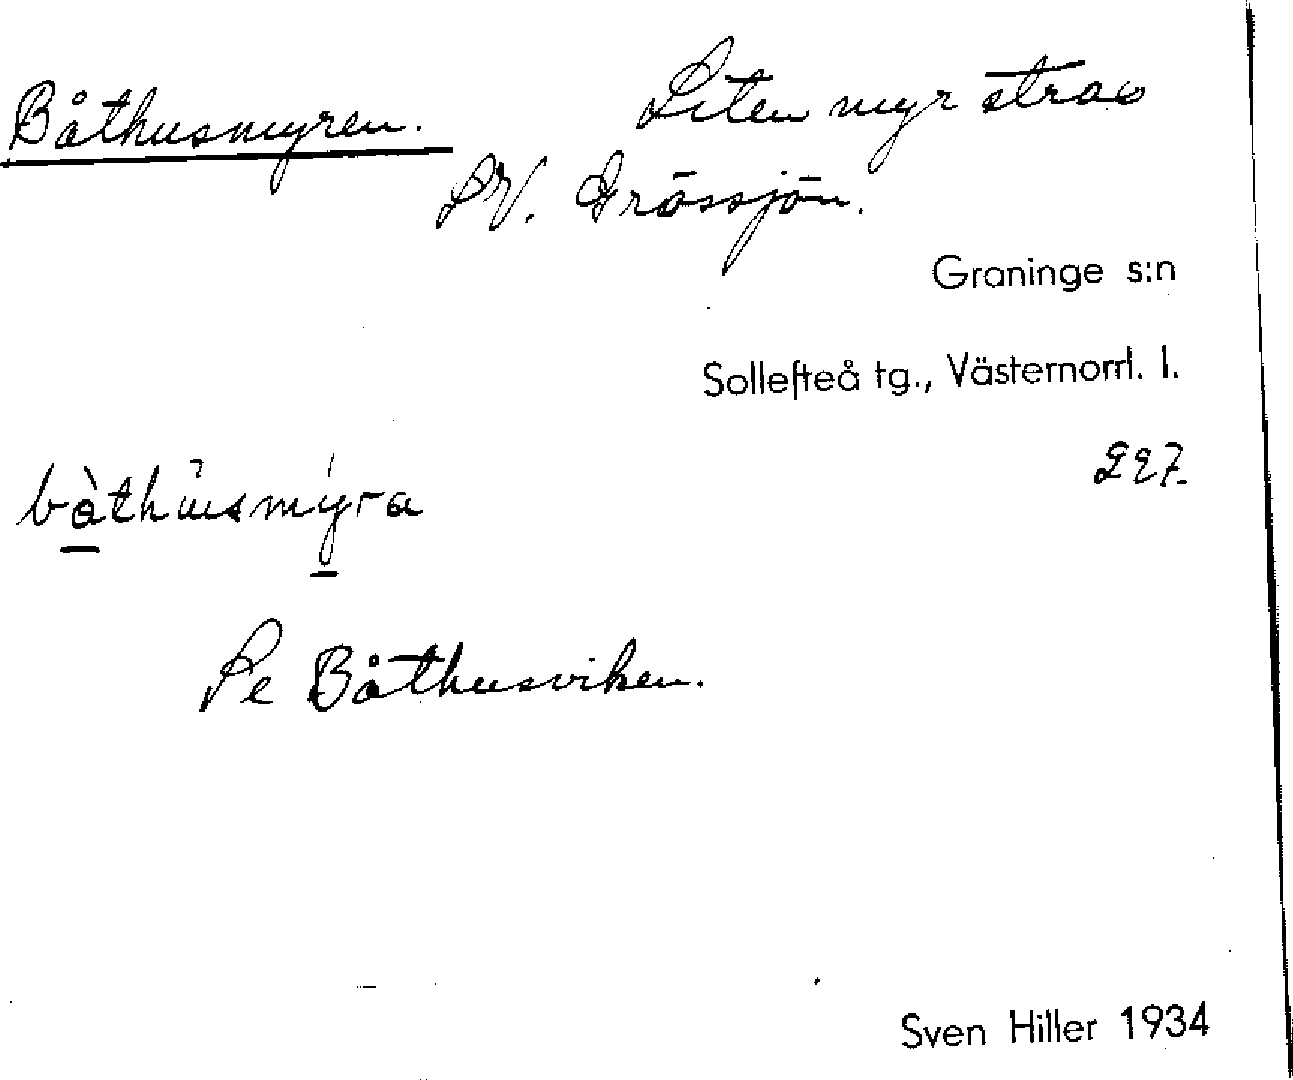 Båthusmyren. Liten myr strax
SV. Grössjön.
Graninge s:n
Sollefteå tg., Västernorrl. l.
227.
bàthusmýra
Se Båthusviken.
Sven Hiller 1934